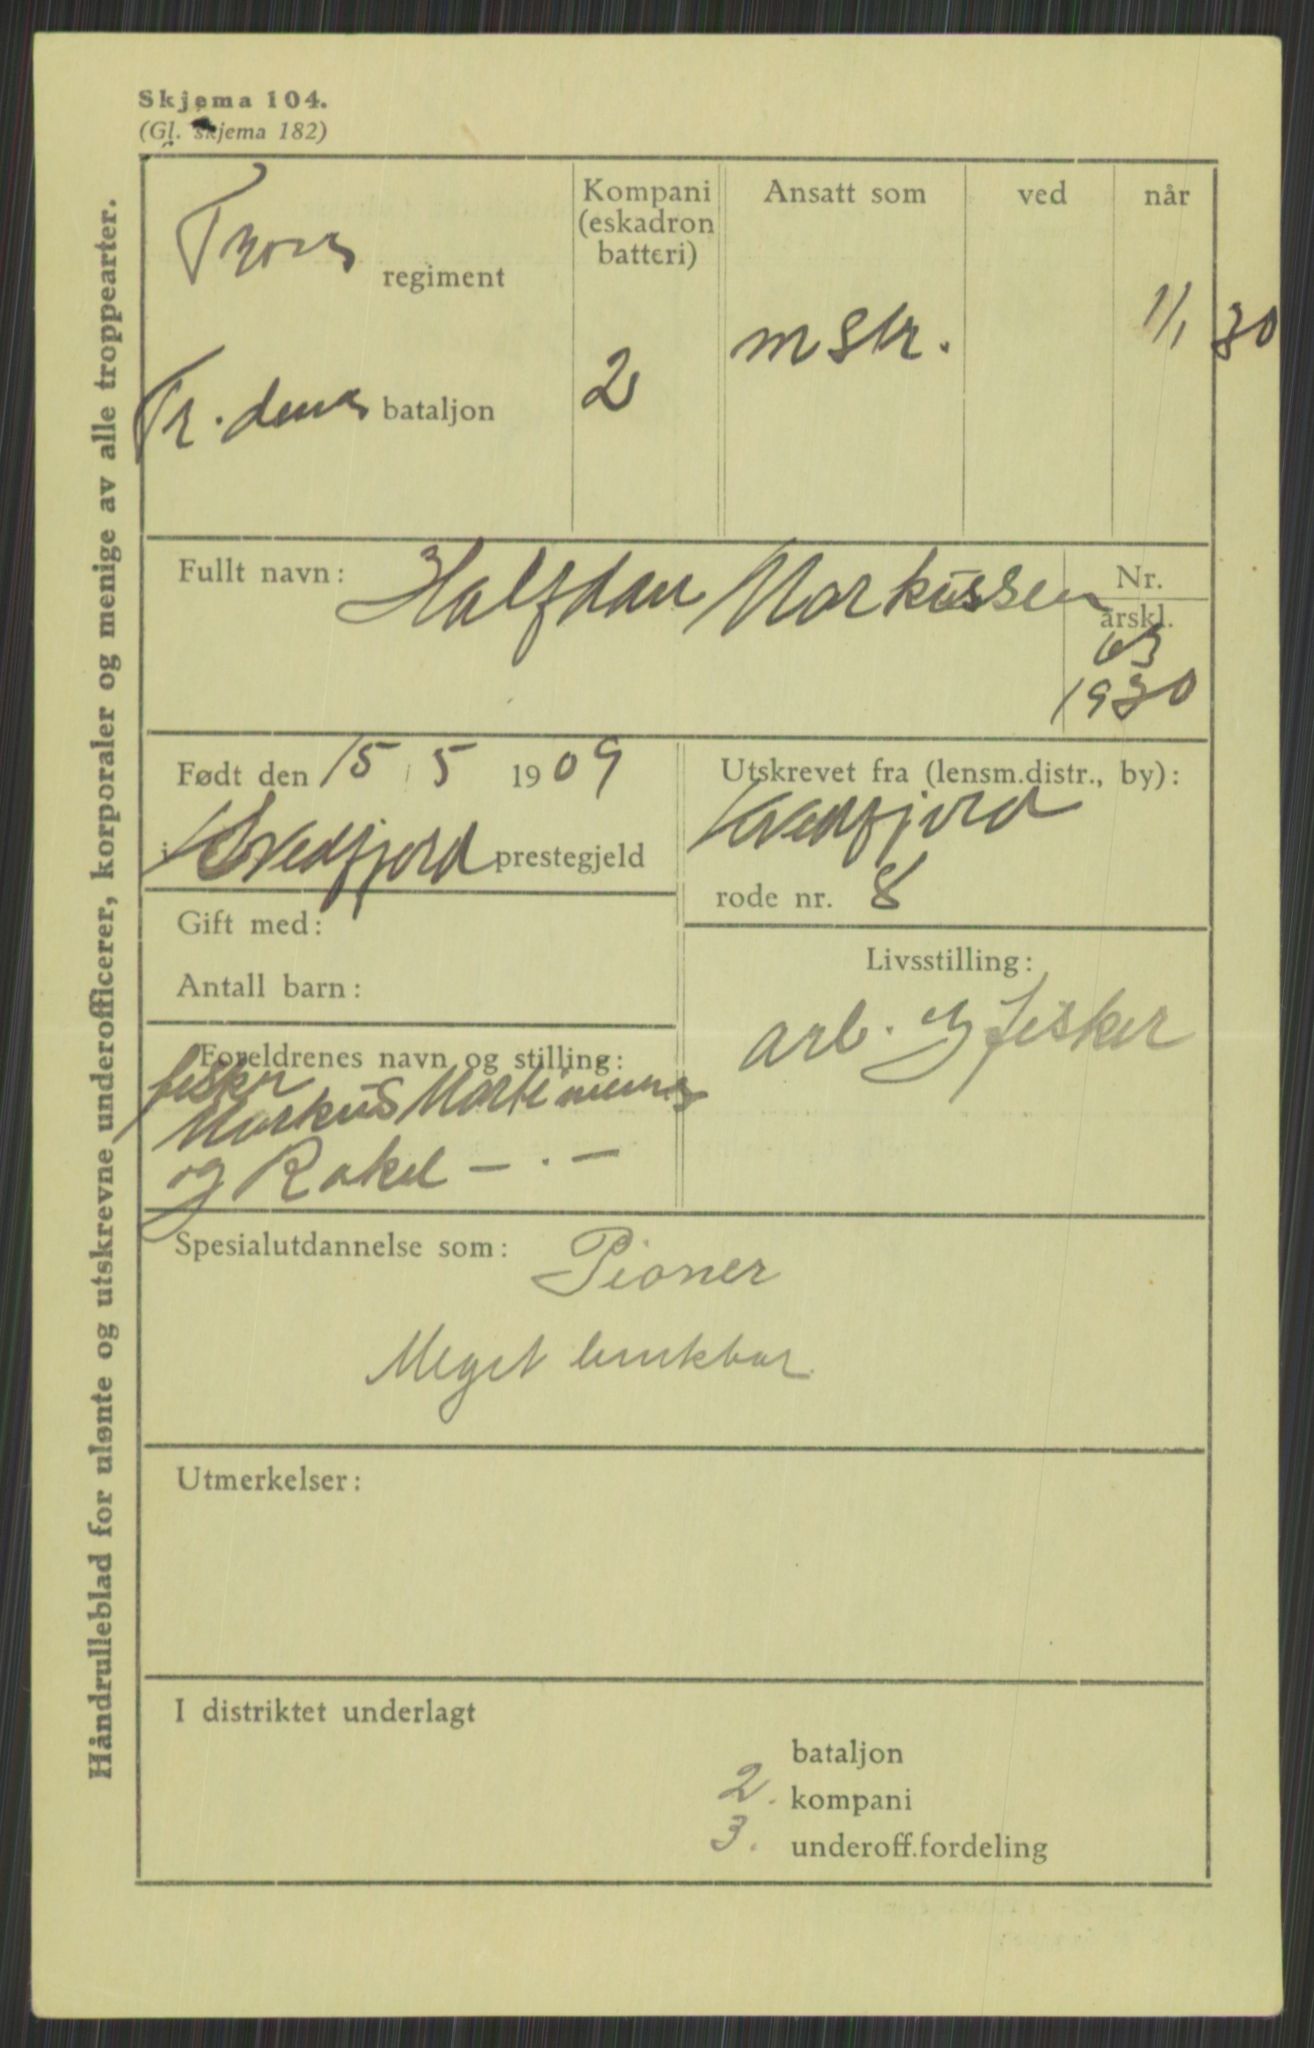 Skjema 104.
(Gl. skjema 182)
Håndrulleblad for ulønte og utskrevne underofficerer, korporaler og menige av alle troppearter.
Troms regiment
Tr. denes bataljon
Kompani
(eskadron
batteri)
2
Ansatt som
m skr.
ved
når
1/1 30
Fullt navn: Halfdan Markussen
Nr.
årskl.
63
1930
Født den 15 5 1909
i Kvedfjord prestegjeld
Utskrevet fra (lensm.distr., by):
Kvedfjord
rode nr. 8
Gift med:
Antall barn:
Livsstilling:
arb. og fisker
Foreldrenes navn og stilling:
fisker
Markus
og Rakel — . —
Spesialutdannelse som: Pioner
Meget brukbar
Utmerkelser:
I distriktet underlagt
bataljon
2. kompani
3. underoff.fordeling